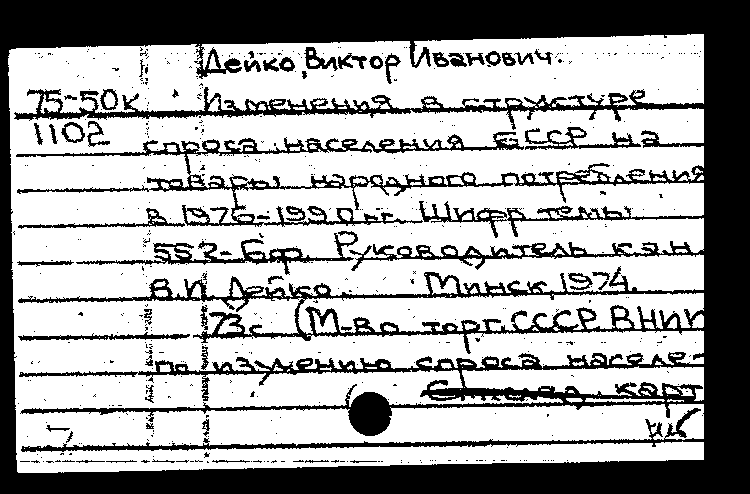 Дейко, Виктор Иванович.
75-50к Изменения в структуре
1102 спроса населения БССР на
товары народного потребления
в 1976-1990 гг. Шифр темы
552-6ф. Руководитель к.э.н.
В.И. Дейко. Минск, 1974.
73с (М-во торг. СССР. ВНИИ
по изучению спроса населе-
карт
7